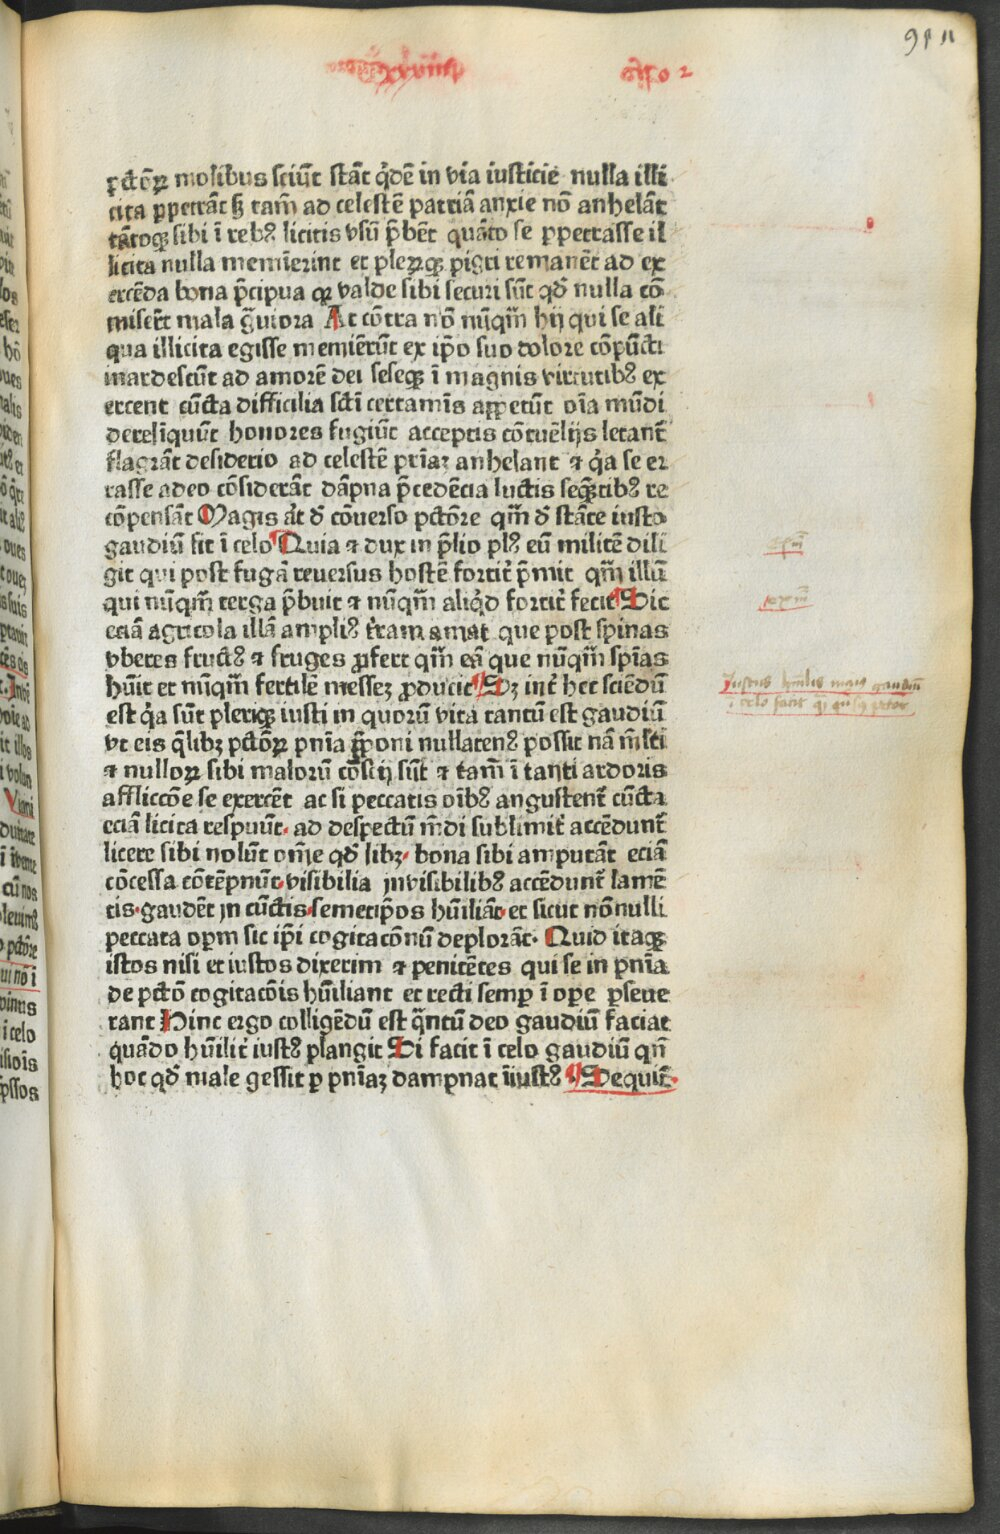 p̲ctōꝝ molibus sciūt stāt q̇dē in via iusticie nulla illi
cita ꝑpetrāt sꝫ tam̄ ad celestē patriā anxie nō anhelāt
tātoqꝫ sibi ī rebꝰ licitis vsū p̄bēt quāto se ꝑpetrasse il
licita nulla meminerint et pleꝝqꝫ pigri remanēt ad ex
ercēda bona p̄cipua qꝛ valde sibi securi sūt qđ nulla cō
miserīt mala g̃uiora At cōtra nō nūqm̄ hij qui se ali
qua illicita egisse meminerūt ex ip̄o suo dolore cōpūcti
inardescūt ad amorē dei seseqꝫ ī magnis virtutibꝰ ex
ercent cūcta difficilia sc̄ti certamīs appetūt oīa mūdi
derelīquūt honores fugiūt acceptis cōtuēlijs letant̄
flagrāt desiderio ad celestē pr̄iaꝫ anhelant ⁊ q̇a se er
rasse adeo cōsiderāt dāpna p̄cedēcia lucris seq̄ntibꝰ re
cōpensāt Magis at̄ đ cōuerso pctōre qm̄ đ stāte iusto
gaudiū fit ī celo Quia ⁊ dux in p̄lio plꝰ eū militē dili
git qui post fugā reuersus hostē fortit̄ p̄mit qm̄ illū
qui nūqm̄ terga p̄buit ⁊ nūqm̄ aliq̇d fortit̄ fecit Sic
eciā agricola illā ampliꝰ t̄ram amat que post spinas
vberes fructꝰ ⁊ fruges ꝓfert qm̄ eā que nūqm̄ spīas
hūit et nūqm̄ fertilē messeꝫ ꝓducit Sꝫ int̄ hec sciēdū
est q̇a sūt pleriqꝫ iusti in quorū vita tantū est gaudiū
vt eis q̄libꝫ pctōꝝ pn̄ia p̄poni nullatenꝰ possit nā m̄lti
⁊ nulloꝝ sibi malorū cōscij sūt ⁊ tam̄ ī tanti ardoris
affliccōe se exercēt ac si peccatis oībꝰ angustent̄ cūcta
eciā licita respuūt ad despectū mūdi sublimit̄ accēdunt̄
licere sibi nolūt om̄e qđ libꝫ bona sibi amputāt eciā
cōcessa cōtēpnūt visibilia jnvisibilibꝰ accēdunt̄ lamē
tis gaudēt jn cūctis semetip̄os hūiliāt et sicut nōnulli
peccata opm sic ip̄i cogitacōnū deplorāt Quid itaqꝫ
istos nisi et iustos dixerim ⁊ penitētes qui se in pn̄ia
de pctō cogitacōis hūiliant et recti semꝑ ī oꝑe ꝑseue
rant Hinc ergo colligēdū est q̄ntū deo gaudiū faciat
quādo hūilit̄ iustꝰ plangit Si facit ī celo gaudiū qn̄
hoc qđ male gessit ꝑ pn̄iaꝫ dampnat īiustꝰ Sequit̄